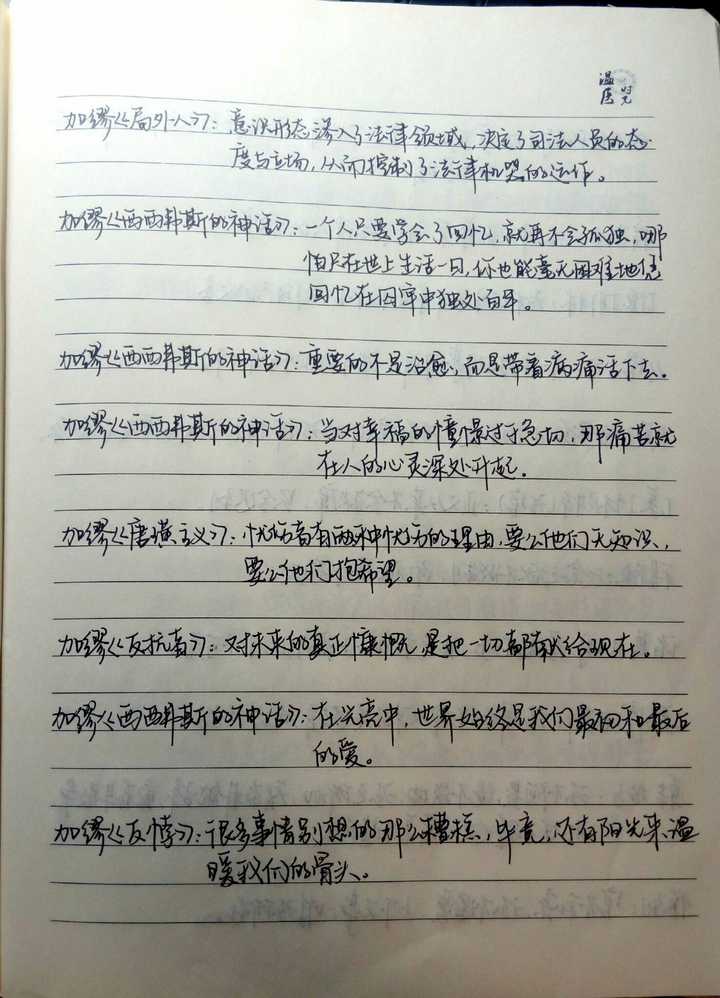 温医
时光
加缪《局外人》：意识形态渗入了法律领域，决定了司法人员的态
度与立场，从而控制了法律机器的运作。
加缪《西西弗斯的神话》：一个人只要学会了回忆，就再不会孤独，哪
怕只在世上生活一日，你也能毫无困难地凭
回忆在囚牢中独处百年。
加缪《西西弗斯的神话》：重要的不是治愈，而是带着病痛活下去。
加缪《西西弗斯的神话》：当对幸福的憧憬过于急切，那痛苦就
在人的心灵深处升起。
加缪《唐璜主义》：忧伤者有两种忧伤的理由，要么他们无知识，
要么他们抱希望。
加缪《反抗者》：对未来的真正慷慨，是把一切都献给现在。
加缪《西西弗斯的神话》：在光亮中，世界始终是我们最初和最后
的爱。
加缪《反悖》：很多事情别想的那么糟糕，毕竟，还有阳光来温
暖我们的骨头。